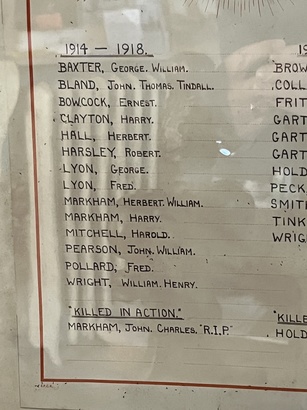 1914 — 1918.
BAXTER, GEORGE. WILLIAM.
BLAND, JOHN. THOMAS. TINDALL.
BOWCOCK, ERNEST.
CLAYTON, HARRY.
HALL, HERBERT.
HARSLEY, ROBERT.
LYON, GEORGE.
LYON, FRED.
MARKHAM, HERBERT. WILLIAM.
MARKHAM, HARRY.
MITCHELL, HAROLD.
PEARSON, JOHN. WILLIAM.
POLLARD, FRED.
WRIGHT, WILLIAM. HENRY.
"KILLED IN ACTION."
MARKHAM, JOHN. CHARLES. "R.I.P."
19
BROW
COLL
FRIT
GART
GART
GART
HOLD
PECK
SMIT
TINK
WRIG
"KILLE
HOLD